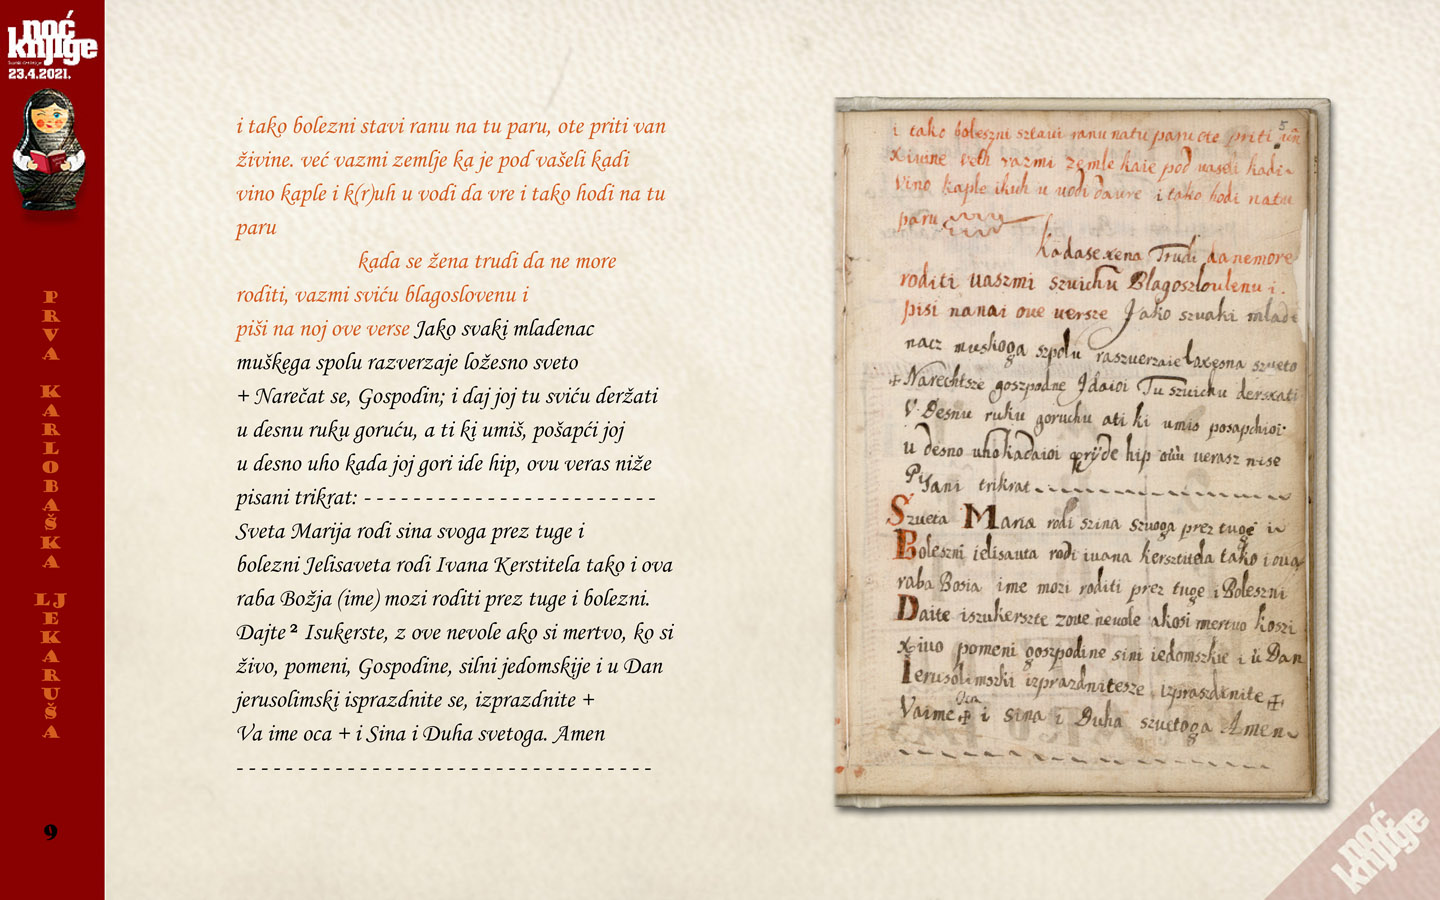 noć
knjige
23.4.2021.
PRVA KARLOBAŠKA LJEKARUŠA
9
i tako bolezni stavi ranu na tu paru, ote priti van
živine. već vazmi zemlje ka je pod vašeli kadi
vino kaple i k(r)uh u vodi da vre i tako hodi na tu
paru
kada se žena trudi da ne more
roditi, vazmi sviću blagoslovenu i
piši na noj ove verse Jako svaki mladenac
muškega spolu razverzaje ložesno sveto
+ Narečat se, Gospodin; i daj joj tu sviću deržati
u desnu ruku goruću, a ti ki umiš, pošapći joj
u desno uho kada joj gori ide hip, ovu veras niže
pisani trikrat: - - - - - - - - - - - - - - - - - - - - - - - -
Sveta Marija rodi sina svoga prez tuge i
bolezni Jelisaveta rodi Ivana Kerstitela tako i ova
raba Božja (ime) mozi roditi prez tuge i bolezni.
Dajte² Isukerste, z ove nevole ako si mertvo, ko si
živo, pomeni, Gospodine, silni jedomskije i u Dan
jerusolimski isprazdnite se, izprazdnite +
Va ime oca + i Sina i Duha svetoga. Amen
- - - - - - - - - - - - - - - - - - - - - - - - - - - - - - - - - -
5
i tako boleszni sztavi ranu natu paru ote priti
xivine vech vazmi zemle kaie pod vaseli kadi
vino kaple ikuh u vodi davre i tako hodi natu
paru
kadasexena Trudi danemore
roditi uaszmi szuichu Blagoszloulenu i
pisi nanai oue uersze Jako szuaki mlade
nacz muskoga szpolu raszuerzaie loxesna szueto
+ Narechtsze goszpodne Idaioi Tu szuichu dersxati
V Desnu ruku goruchu ati ki umis posapchioi
u desno uho kadaioi hip ouu uerasz nise
Pisani trikrat
Szueta Maria rodi szina szuoga prez tuge i
Boleszni ielisauta rodi iuana kersztitela tako i oua
raba Bosia ime mozi roditi prez tuge i Boleszni
Daite iszukerszte zoue neuole akosi mertuo koszi
xiuo pomeni goszpodine sini iedomszkie i u Dan
Ierusolimszki izprazdnitesze izpraszdnite +
Vaime Oca + i Sina i Duha szuetoga Amen
noć
knjige